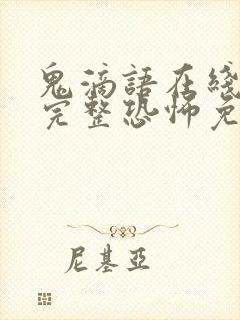 鬼滴語在綫
完整恐怖免
尼基亞